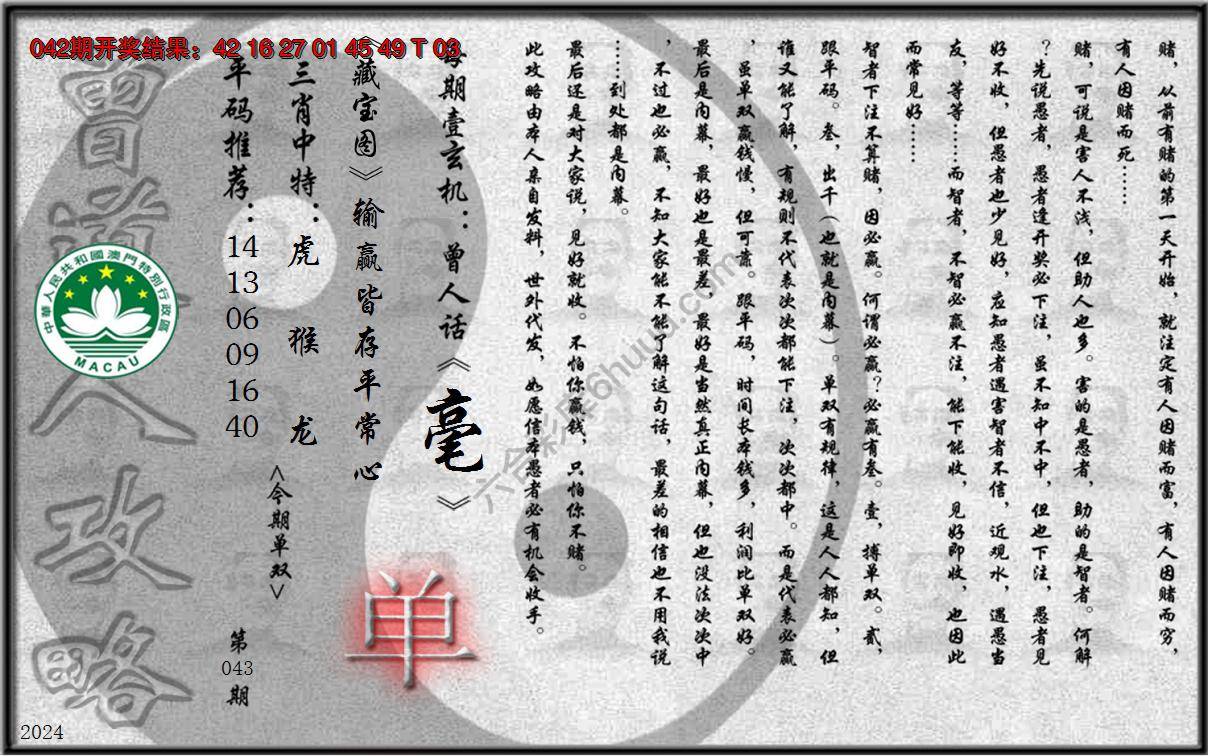 042期开奖结果：42 16 27 01 45 49 T 03
赌，从前有赌的第一天开始，就注定有人因赌而富，有人因赌而穷，
有人因赌而死……
赌，可说是害人不浅，但助人也多。害的是愚者，助的是智者。何解
？先说愚者，愚者逢开奖必下注，虽不知中不中，但也下注，愚者见
好不收，但愚者也少见好，应知愚者遇害智者不信，近观水，遇愚当
友，等等……而智者，不智必赢不注，能下能收，见好即收，也因此
而常见好……
智者下注不算赌，因必赢。何谓必赢？必赢有叁。壹，搏单双。贰，
跟平码。叁，出千（也就是内幕）。单双有规律，这是人人都知，但
谁又能了解，有规则不代表次次都能下注，次次都中。而是代表必赢
，虽单双赢钱慢，但可靠。跟平码，时间长本钱多，利润比单双好。
最后是内幕，最好也是最差，最好是当然真正内幕，但也没法次次中
，不过也必赢，不知大家能不能了解这句话，最差的相信也不用我说
……到处都是内幕。
最后还是对大家说，见好就收。不怕你赢钱，只怕你不赌。
此攻略由本人亲自发料，世外代发，如愿信本愚者必有机会收手。
每期壹玄机：曾人话《毫》
《藏宝图》输赢皆存平常心
单
三肖中特：虎 猴 龙
<今期单双>
平码推荐：14 13 06 09 16 40
第043期
曾道人攻略
中華人民共和國澳門特別行政區
MACAU
六合彩库6huuu.com
2024